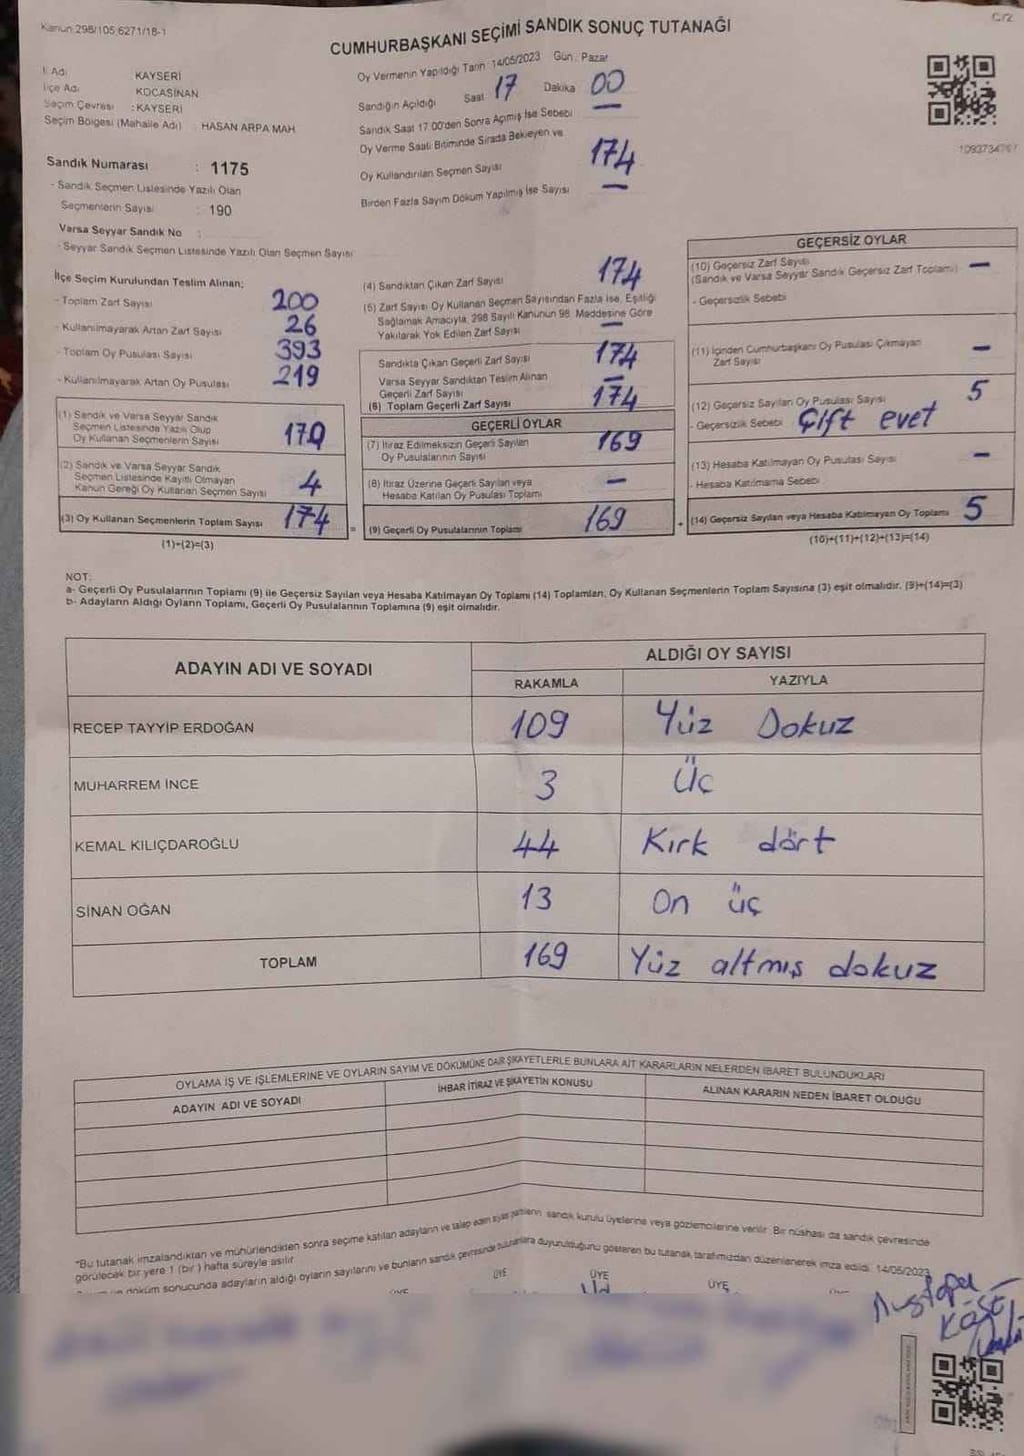 Kanun 298/105,6271/18-1
C/2
CUMHURBAŞKANI SEÇİMİ SANDIK SONUÇ TUTANAĞI
İl Adı KAYSERİ
İlçe Adı KOCASİNAN
Seçim Çevresi : KAYSERİ
Seçim Bölgesi (Mahalle Adı) : HASAN ARPA MAH
Sandık Numarası : 1175
- Sandık Seçmen Listesinde Yazılı Olan
Seçmenlerin Sayısı : 190
Varsa Seyyar Sandık No :
- Seyyar Sandık Seçmen Listesinde Yazılı Olan Seçmen Sayısı
Oy Vermenin Yapıldığı Tarih : 14/05/2023 Gün : Pazar
Sandığın Açıldığı Saat 17 Dakika 00
Sandık Saat 17:00'den Sonra Açılmış İse Sebebi —
Oy Verme Saati Bitiminde Sırada Bekleyen ve
Oy Kullandırılan Seçmen Sayısı 174
Birden Fazla Sayım Döküm Yapılmış İse Sayısı —
İlçe Seçim Kurulundan Teslim Alınan;
- Toplam Zarf Sayısı 200
- Kullanılmayarak Artan Zarf Sayısı 26
- Toplam Oy Pusulası Sayısı 393
- Kullanılmayarak Artan Oy Pusulası 219
(1) Sandık ve Varsa Seyyar Sandık
Seçmen Listesinde Yazılı Olup
Oy Kullanan Seçmenlerin Sayısı 170
(2) Sandık ve Varsa Seyyar Sandık
Seçmen Listesinde Kayıtlı Olmayan
Kanun Gereği Oy Kullanan Seçmen Sayısı 4
(3) Oy Kullanan Seçmenlerin Toplam Sayısı 174
(1)+(2)=(3)
(4) Sandıktan Çıkan Zarf Sayısı 174
(5) Zarf Sayısı Oy Kullanan Seçmen Sayısından Fazla ise, Eşitliği
Sağlamak Amacıyla, 298 Sayılı Kanunun 98. Maddesine Göre
Yakılarak Yok Edilen Zarf Sayısı —
Sandıkta Çıkan Geçerli Zarf Sayısı 174
Varsa Seyyar Sandıktan Teslim Alınan
Geçerli Zarf Sayısı —
(6) Toplam Geçerli Zarf Sayısı 174
GEÇERLİ OYLAR
(7) İtiraz Edilmeksizin Geçerli Sayılan
Oy Pusulalarının Sayısı 169
(8) İtiraz Üzerine Geçerli Sayılan veya
Hesaba Katılan Oy Pusulası Toplamı —
= (9) Geçerli Oy Pusulalarının Toplamı 169
GEÇERSİZ OYLAR
(10) Geçersiz Zarf Sayısı
(Sandık ve Varsa Seyyar Sandık Geçersiz Zarf Toplamı) —
- Geçersizlik Sebebi
(11) İçinden Cumhurbaşkanı Oy Pusulası Çıkmayan
Zarf Sayısı —
(12) Geçersiz Sayılan Oy Pusulası Sayısı 5
- Geçersizlik Sebebi Çift evet
(13) Hesaba Katılmayan Oy Pusulası Sayısı —
- Hesaba Katılmama Sebebi
+ (14) Geçersiz Sayılan veya Hesaba Katılmayan Oy Toplamı 5
(10)+(11)+(12)+(13)=(14)
NOT:
a- Geçerli Oy Pusulalarının Toplamı (9) ile Geçersiz Sayılan veya Hesaba Katılmayan Oy Toplamı (14) Toplamları, Oy Kullanan Seçmenlerin Toplam Sayısına (3) eşit olmalıdır. (9)+(14)=(3)
b- Adayların Aldığı Oyların Toplamı, Geçerli Oy Pusulalarının Toplamına (9) eşit olmalıdır.
ADAYIN ADI VE SOYADI ALDIĞI OY SAYISI
RAKAMLA YAZIYLA
RECEP TAYYİP ERDOĞAN 109 Yüz Dokuz
MUHARREM İNCE 3 Üç
KEMAL KILIÇDAROĞLU 44 Kırk dört
SİNAN OĞAN 13 On üç
TOPLAM 169 Yüz altmış dokuz
OYLAMA İŞ VE İŞLEMLERİNE VE OYLARIN SAYIM VE DÖKÜMÜNE DAİR ŞİKAYETLERLE BUNLARA AİT KARARLARIN NELERDEN İBARET BULUNDUKLARI
ADAYIN ADI VE SOYADI İHBAR İTİRAZ VE ŞİKAYETİN KONUSU ALINAN KARARIN NEDEN İBARET OLDUĞU
"Bu tutanak imzalandıktan ve mühürlendikten sonra seçime katılan adayların ve talep eden siyasi partilerin sandık kurulu üyelerine veya gözlemcilerine verilir. Bir nüshası da sandık çevresinde
görülecek bir yere 1 (bir) hafta süreyle asılır
döküm sonucunda adayların aldığı oyların sayılarını ve bunların sandık çevresinde bulunanlara duyurulduğunu gösteren bu tutanak tarafımızdan düzenlenerek imza edildi. 14/05/2023
ÜYE ÜYE ÜYE
Mustafa